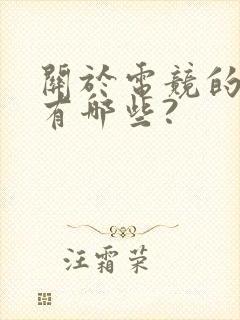 關於電競的
有哪些?
汪霜荣